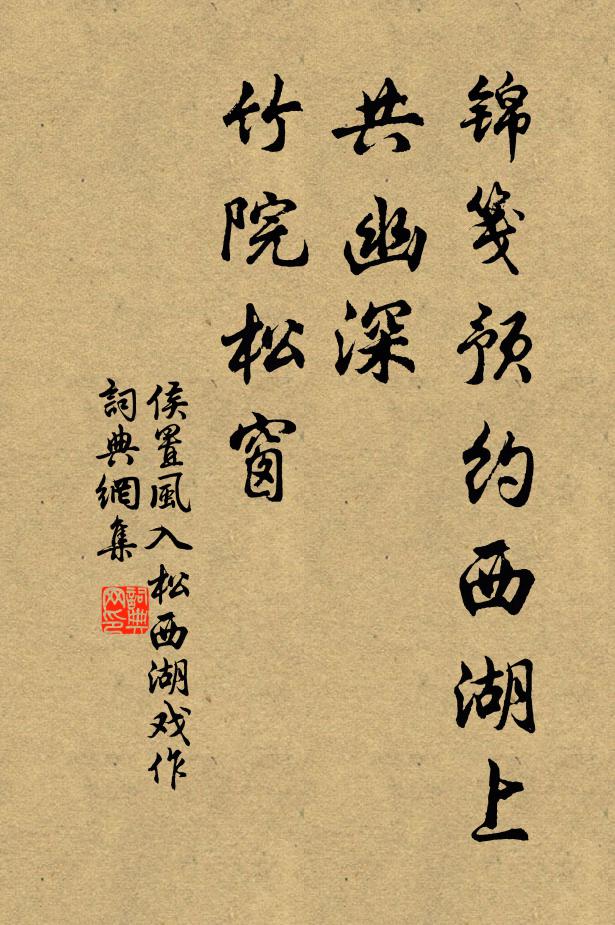 锦笺预约西湖上
共幽深
竹院松窗
侯置風入松西湖戏作
詞典網集
詞典网印